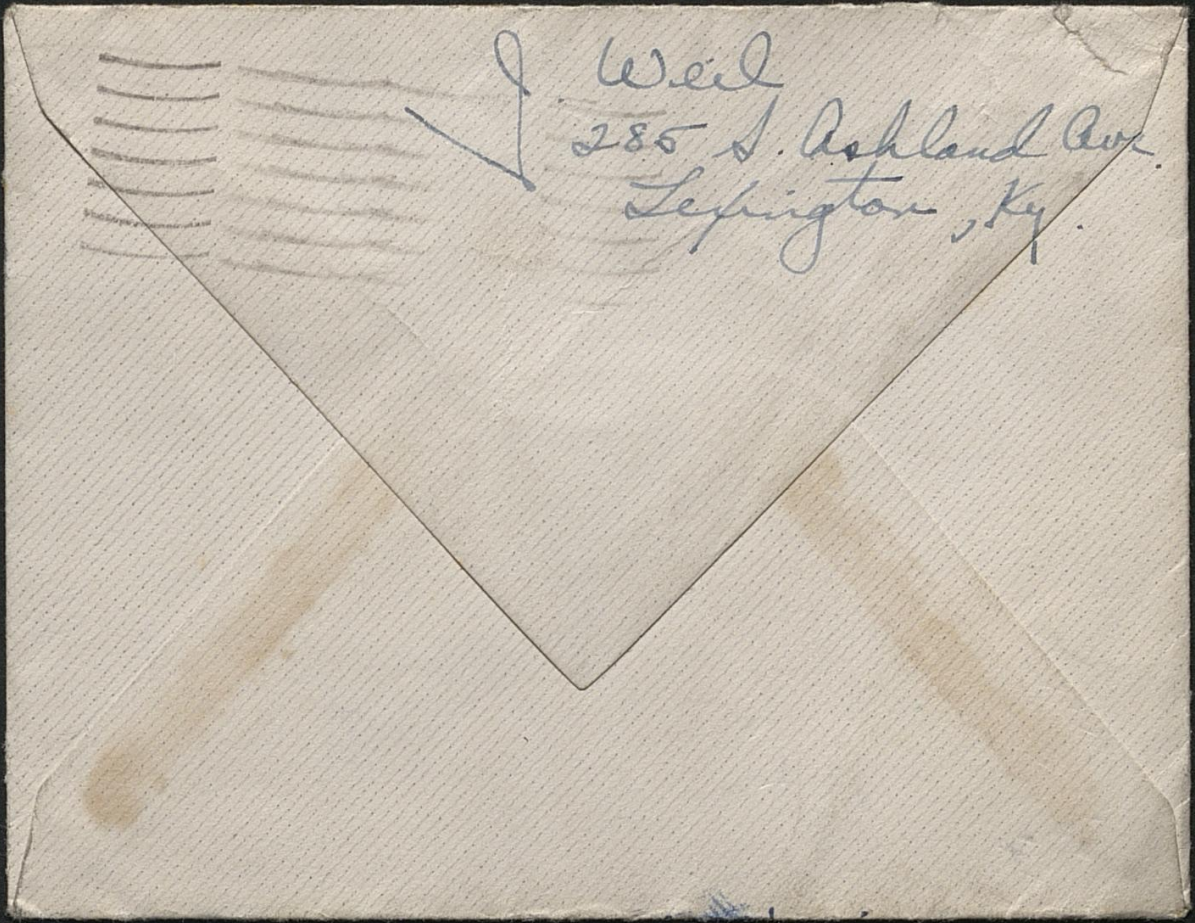 J Weil
285 S. Ashland Ave.
Lexington, Ky.